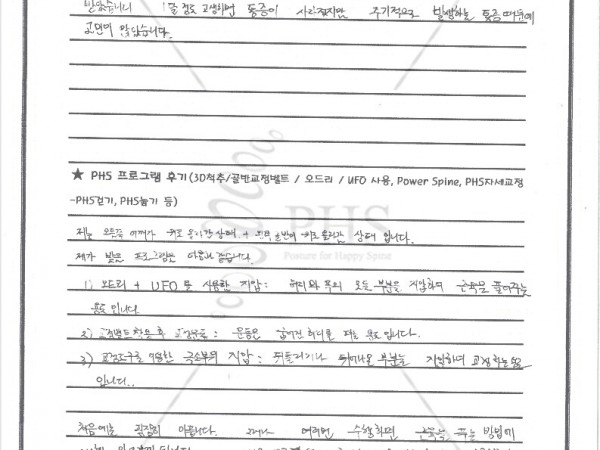 받았습니다 1달 정도 고생하면 통증이 사라졌지만 주기적으로 발생하는 통증때문에
고민이 많았습니다.
★ PHS 프로그램 후기(3D척추/골반교정벨트 / 오드리 / UFO 사용, Power Spine, PHS자세교정
-PHS걷기, PHS눕기 등)
PHS
Posture for Happy Spine
저는 오른쪽 어깨가 뒤로 상태 + 골반이 뒤로 틀어진 상태 입니다.
제가 받은 프로그램은 다음과 같습니다.
1) 오드리 + UFO 를 사용한 지압 : 허리와 목의 모든 부분을 지압하며 근육을 풀어주는
용도 입니다.
2) 교정벨트 착용 후 : 운동은 허리를 펴는 용도 입니다.
3) 교정도구를 이용한 지압 : 뒤틀리거나 튀어나온 부분을 지압하며 교정하는 용도
입니다..
처음에는 굉장히 아픕니다. 그러나 여러번 수행하면 근육을 푸는 방법에